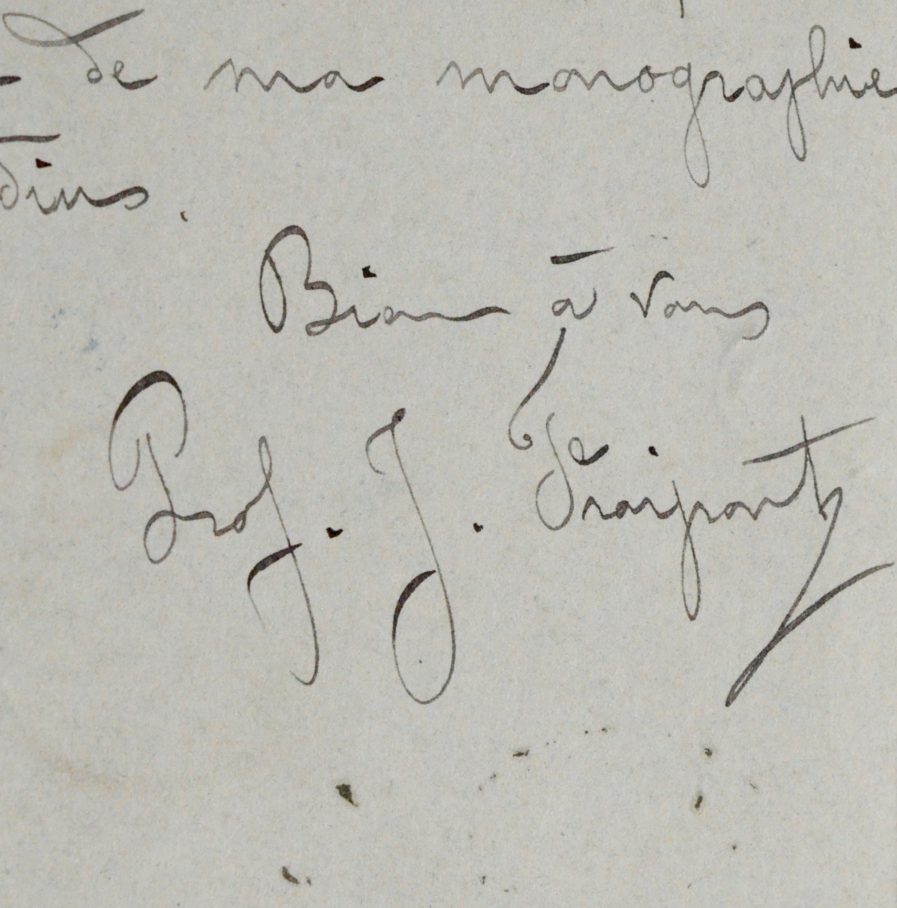 de ma monographie
dins.
Bien à vous
Prof. J. Fraipont